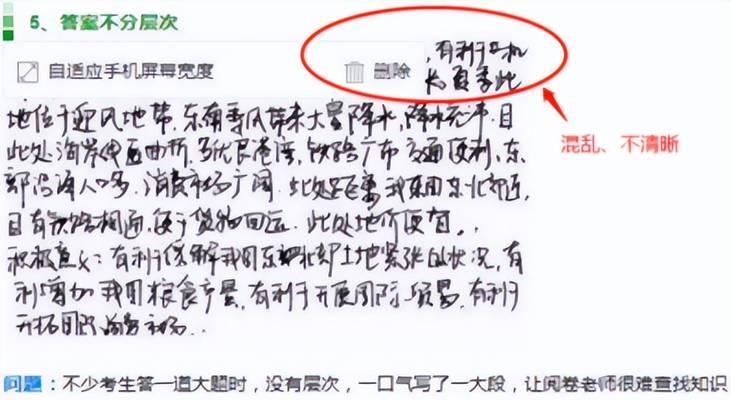 5、答案不分层次
自适应手机屏幕宽度 删除
,有利于农机
为 夏季 此
混乱、不清晰
地位于迎风地带,东南季风带来大量降水,降水充沛,且
此处海岸线曲折,多优良港湾,铁路广布交通便利,东
部沿海人口多,消费市场广阔.此处距离我国东北部近,
且有铁路相通,便于货物回运.此处地价便宜.,
积极意义:有利于缓解我国东北部土地紧张的状况,有
利增加我国粮食产量,有利于开展国际贸易,有利于
开拓国际 市场..
问题:不少考生答一道大题时,没有层次,一口气写了一大段,让阅卷老师很难查找知识